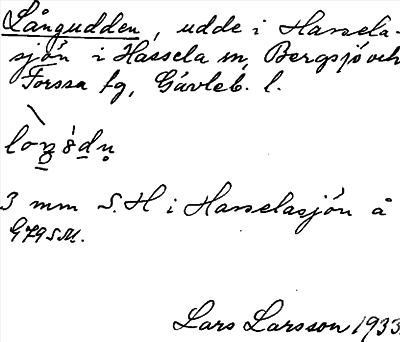 Långudden, udde i Hassela-
sjön i Hassela sn, Bergsjö och
Forssa tg, Gävleb. l.
3 mm S. H i Hasselasjön å
G79SM.
Lars Larsson 1933